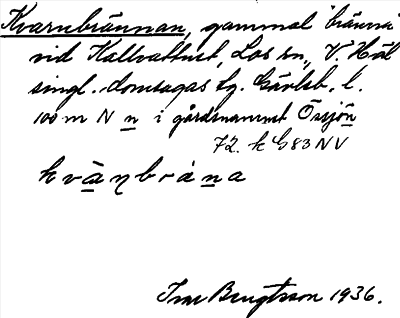 Kvarnbrännan, gammal "bränna"
vid Kallvattnet, Los sn, V. Häl
singl. domsagas tg. Gävleb. l.
100 m N n i gårdsnamnet Örsjön
72. k G83NV
kvànbrána
Ivar Bengtsson 1936.